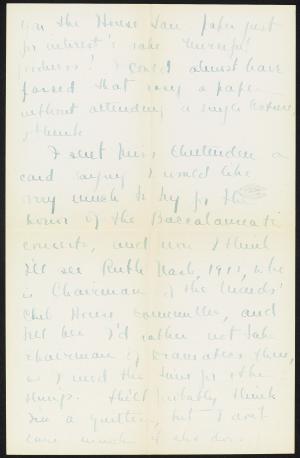 on the House Law paper just
for interest's sake. Merciful
goodness! I could almost have
passed that easy a paper
without attending a single lecture
I think.
I sent Miss Chittenden a
card saying I would like
very much to try for the
honor of the Baccalaureate
concerts, and now I think
I'll see Ruth Nash, 1911, who
is Chairman of the Maids'
Club House Committee, and
tell her I'd rather not take
chairman of Dramatics there,
as I need the time for other
things. She'll probably think
I'm a quitter, but I don't
care much if she does.